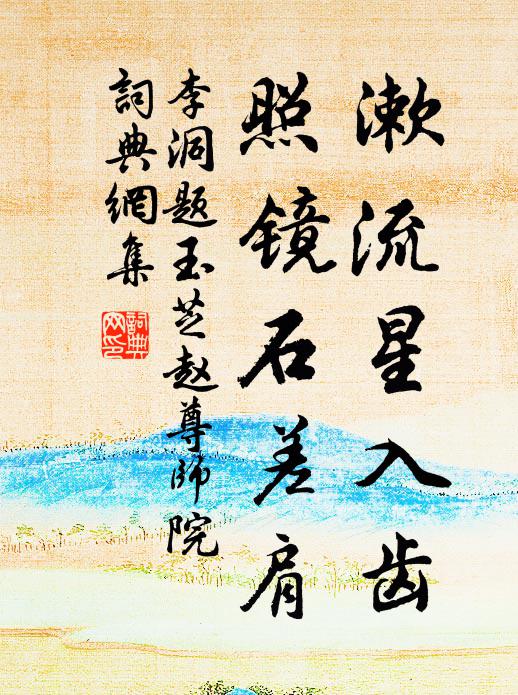 漱流星入齿
照镜石差肩
李洞题玉芝赵尊師院
詞典網集
詞典
网印